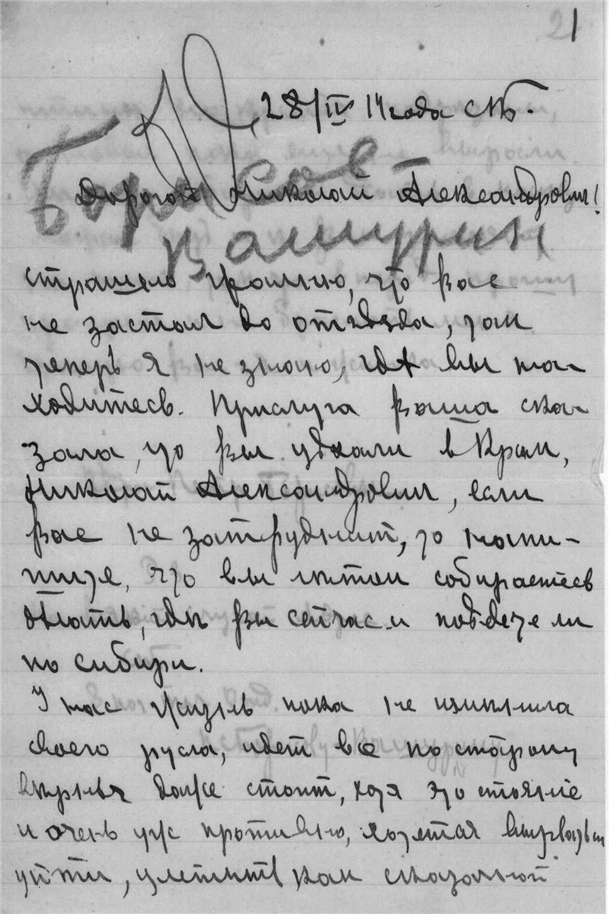 21
28/IV 14 года СПб.
Борисов-
Дорогой Николай Александрович!
Вашурин
страшно грустно, что вас
не застал до отъезда, так
теперь я не знаю, где вы на-
ходитесь. Прислуга ваша ска-
зала, что вы уехали в Крым,
Николай Александрович, если
вас не затруднит, то напи-
шите, что вы летом собираетесь
дѣлать, гдѣ вы сейчас и поѣдете ли
по Сибири.
У нас жизнь пока не изменила
своего русла, идет все по старому
даже стоит, хотя это стояние
и очень уж противно, хочется вырваться
уйти, улететь как сказочной